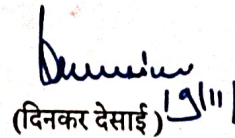 (दिनकर देसाई) 19/11/